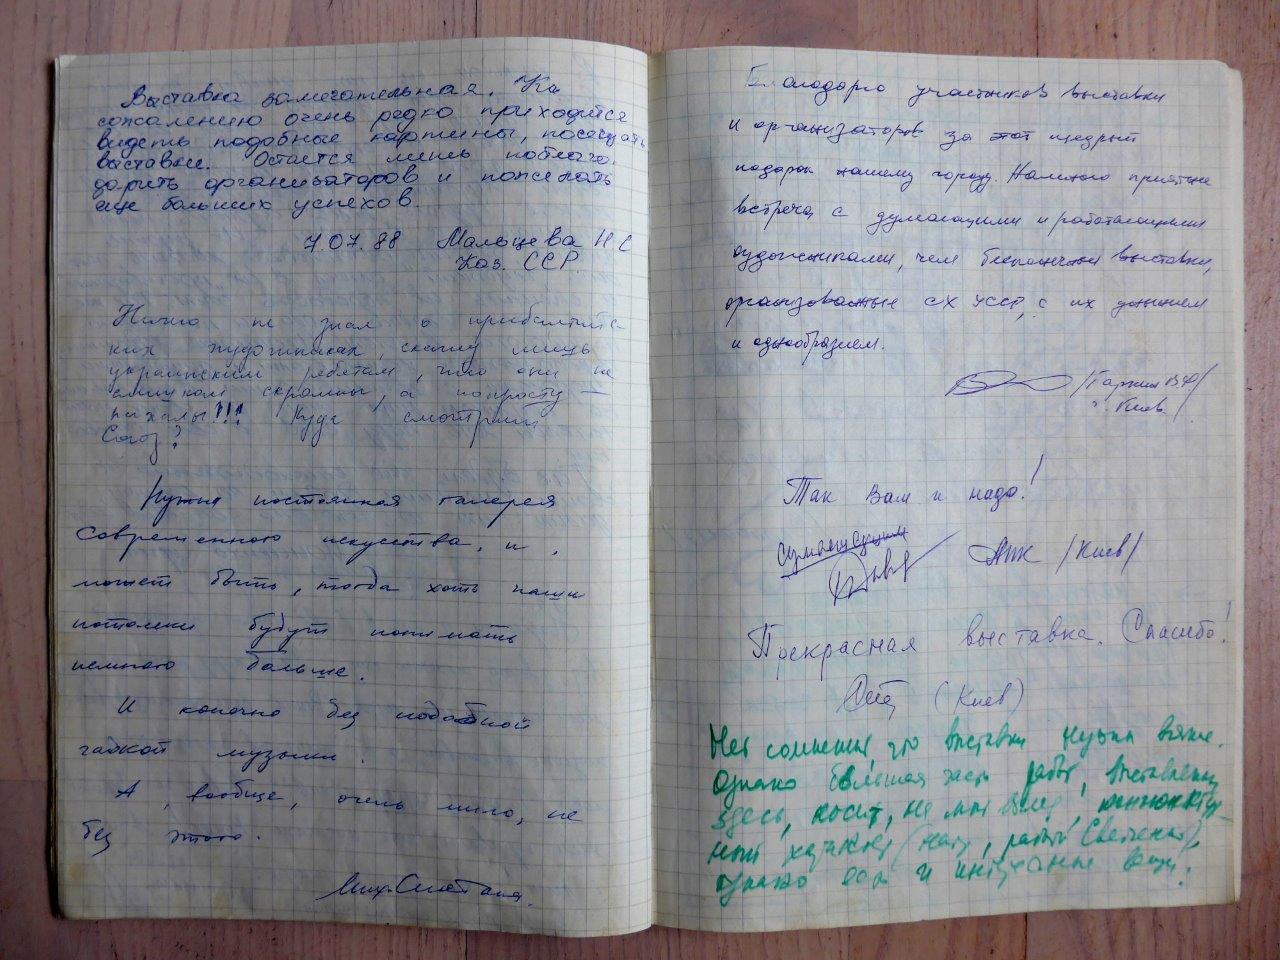 Выставка замечательная. Ка
сожалению очень редко приходится
видеть подобные картины, посещать
выставки. Остается лишь поблаго-
дарить организаторов и пожелать
еще больших успехов.
7.07.88 Мальцева Н С
Каз. ССР.
Ничего не знал о прибалтийс-
ких художниках, скажу лишь
украинским ребятам, что они не
слишком скромны, а попросту —
нахалы!!! Куда смотрит
Союз?
Нужна постоянная галерея
современного искусства, и,
может быть, тогда хоть наши
потомки будут понимать
немного больше.
И конечно без подобной
гадкой музыки.
А, вообще, очень мило, не
без этого.
Благодарю участников выставки
и организаторов за этот щедрый
подарок нашему городу. Намного приятнее
встреча с думающими и работающими
художниками, чем бесконечные выставки,
организованные СХ УССР, с их унынием
и однообразием.
г. Киев
Так Вам и надо!
(Киев)
Прекрасная выставка. Спасибо!
(Киев)
Нет сомнения, что выставки нужны всякие.
Однако большая часть работ, выставленных
здесь, носит, на мой взгляд, конъюнктур-
ный характер (напр, работы
однако есть и интересные вещи.